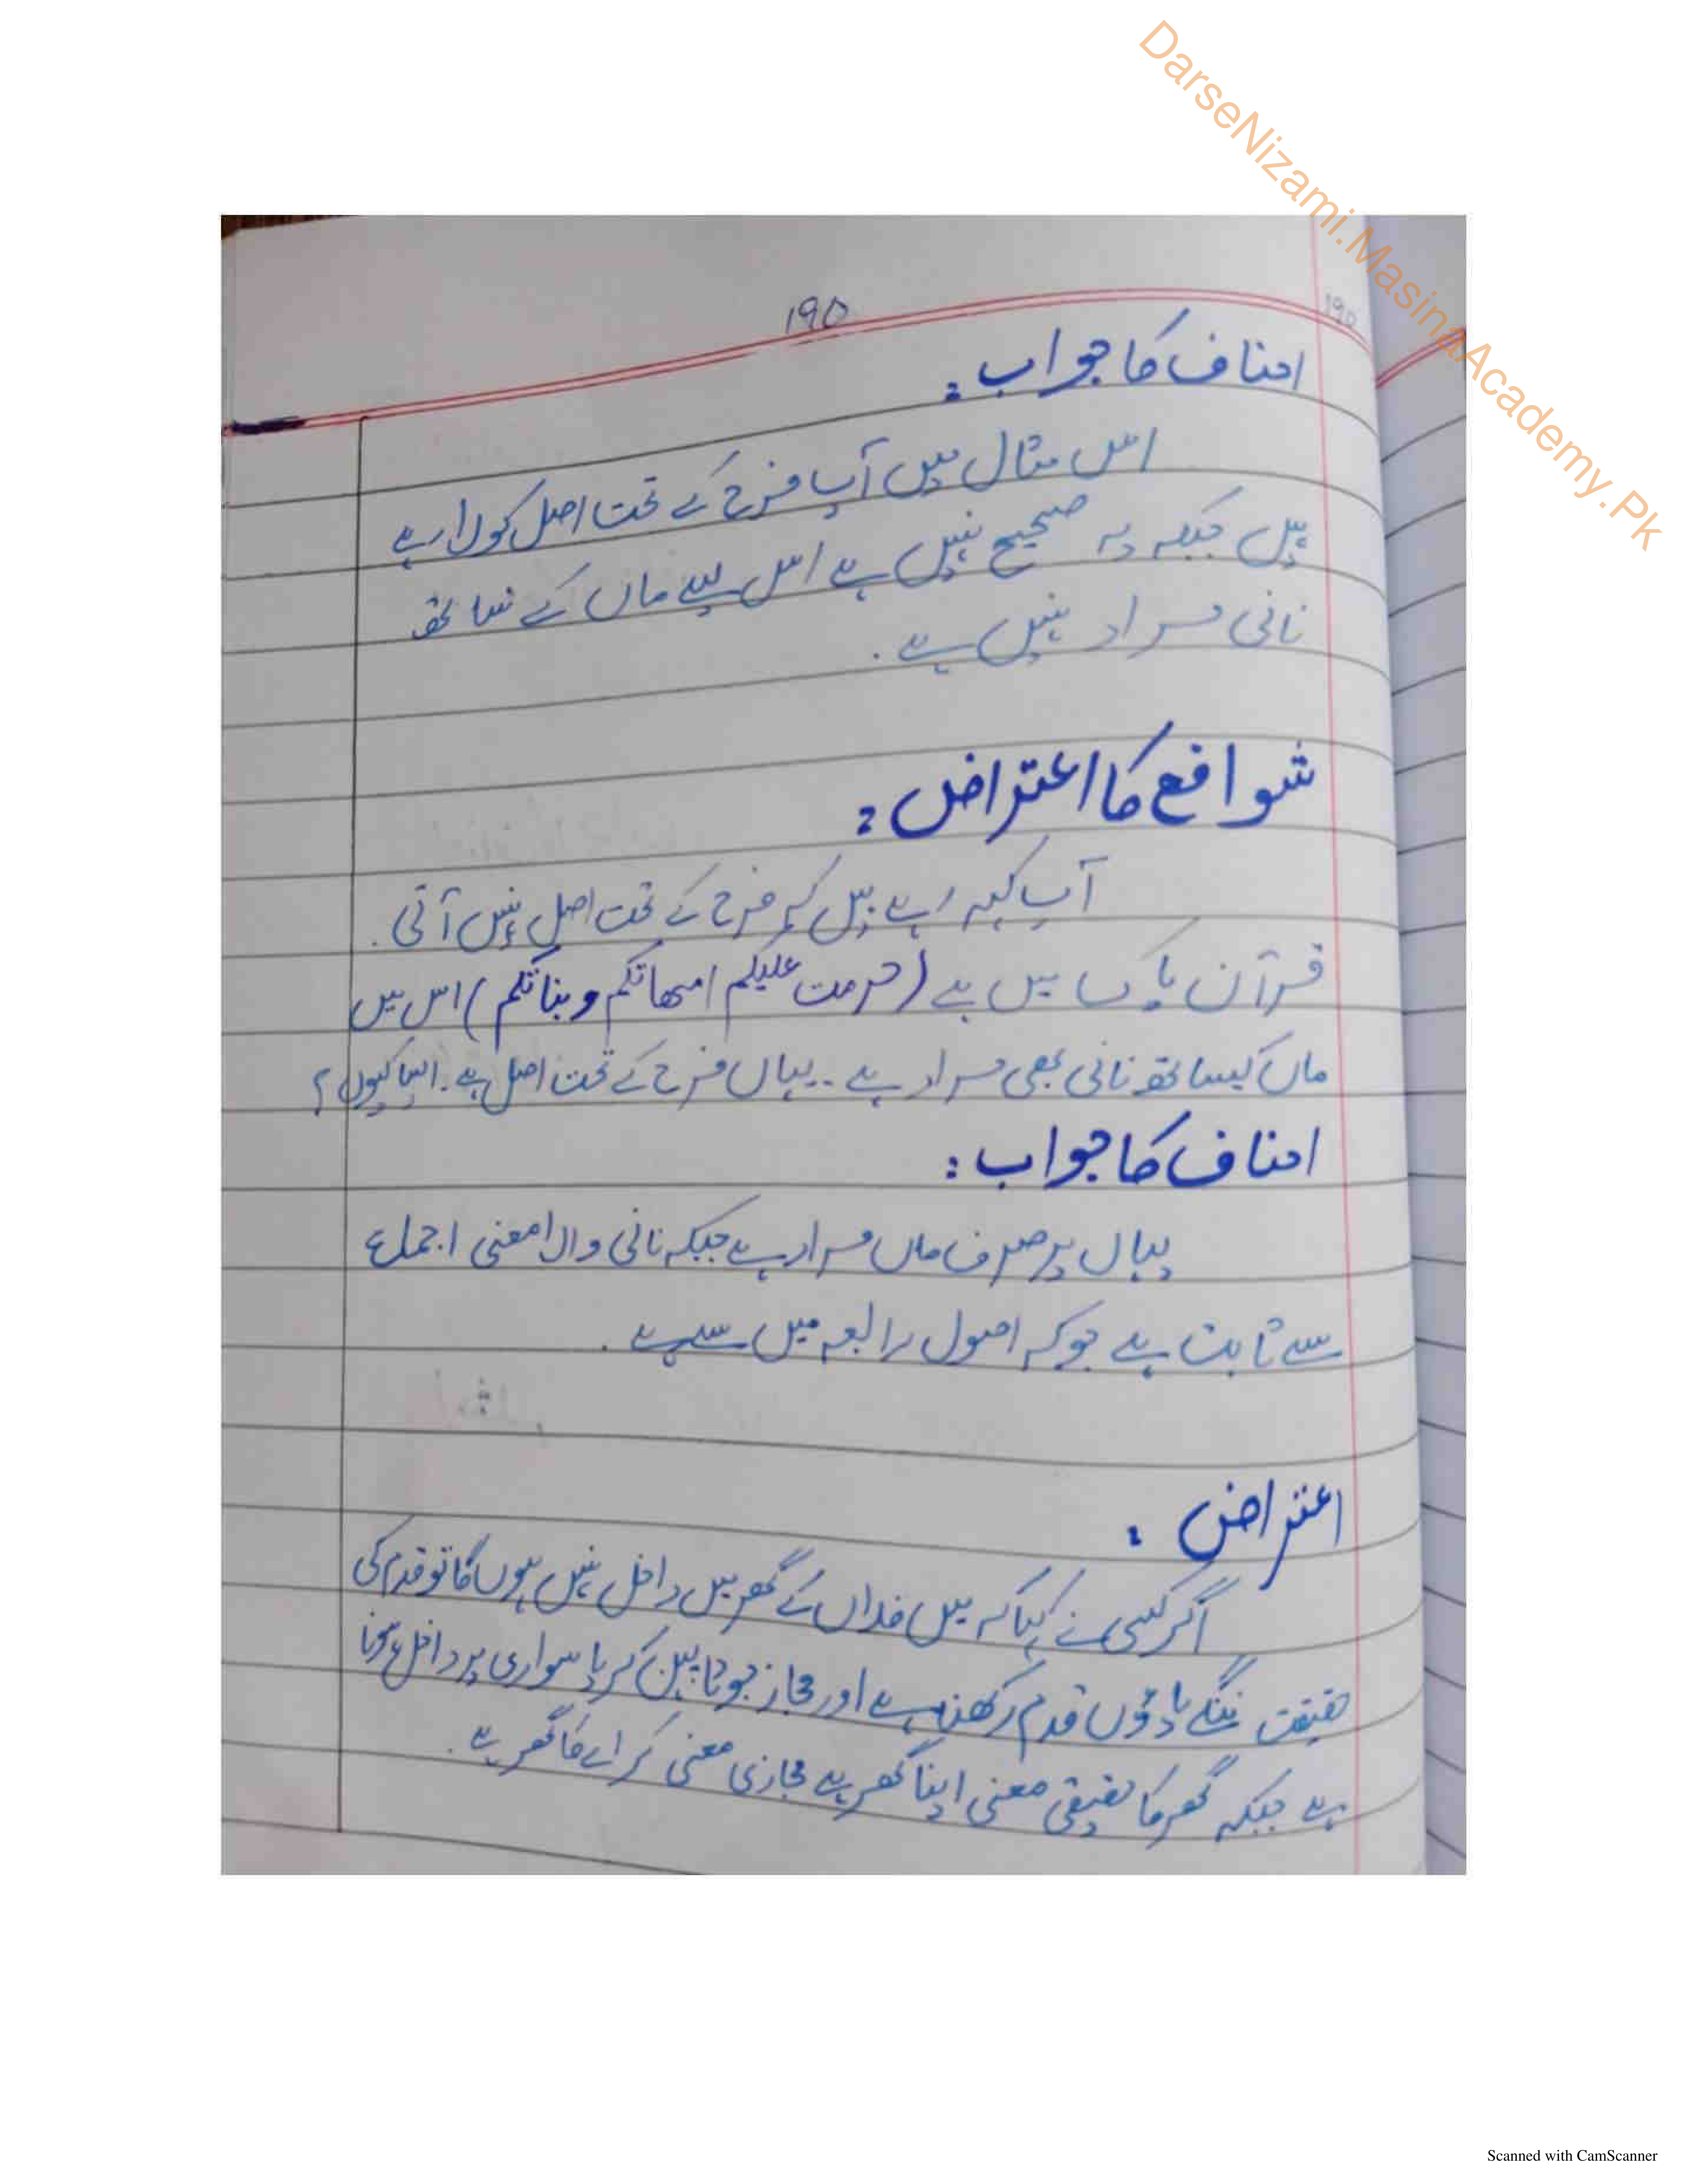 DarseNizami.MasinaAcademy.Pk
190
احناف کا جواب :
اس مثال میں آپ فرح کے تحت اصل کو لا رہے
ہیں جبکہ یہ صحیح نہیں ہے اس لیے ماں کے ساتھ
نانی مراد نہیں ہے .
شوافع کا اعتراض :
آپ کہہ رہے ہیں کہ فرح کے تحت اصل نہیں آتی .
قرآن پاک میں ہے (حرمت علیکم امھاتکم وبناتکم) اس میں
ماں کیساتھ نانی بھی مراد ہے .. یہاں فرح کے تحت اصل ہے . ایسا کیوں ؟
احناف کا جواب :
یہاں پر صرف ماں مراد ہے جبکہ نانی والا معنی اجماع
سے ثابت ہے جو کہ اصول رابعہ میں سے ہے .
اعتراض :
اگر کسی نے کہا کہ میں فداں کے گھر میں داخل نہیں ہوں گا تو قدم کی
حقیقت ننگے پاؤں قدم رکھنا ہے اور مجاز جوتا پہن کر یا سواری پر داخل ہونا
ہے جبکہ گھر کا حقیقی معنی اپنا گھر ہے مجازی معنی کرائے کا گھر ہے .
Scanned with CamScanner